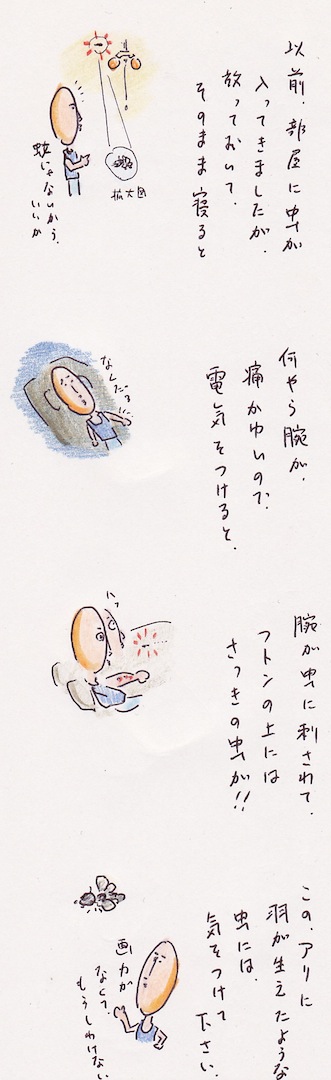 以前、部屋に虫が
入ってきましたが、
放っておいて、
そのまま寝ると
拡大図
蚊じゃないから、
いいか
何やら腕が、
痛かゆいので、
電気をつけると、
なんだ?
腕が虫に刺されて、
フトンの上には
さっきの虫が!!
この、アリに
羽が生えたような
虫には、
気をつけて
下さい。
画力が
なくて、
もうしわけない